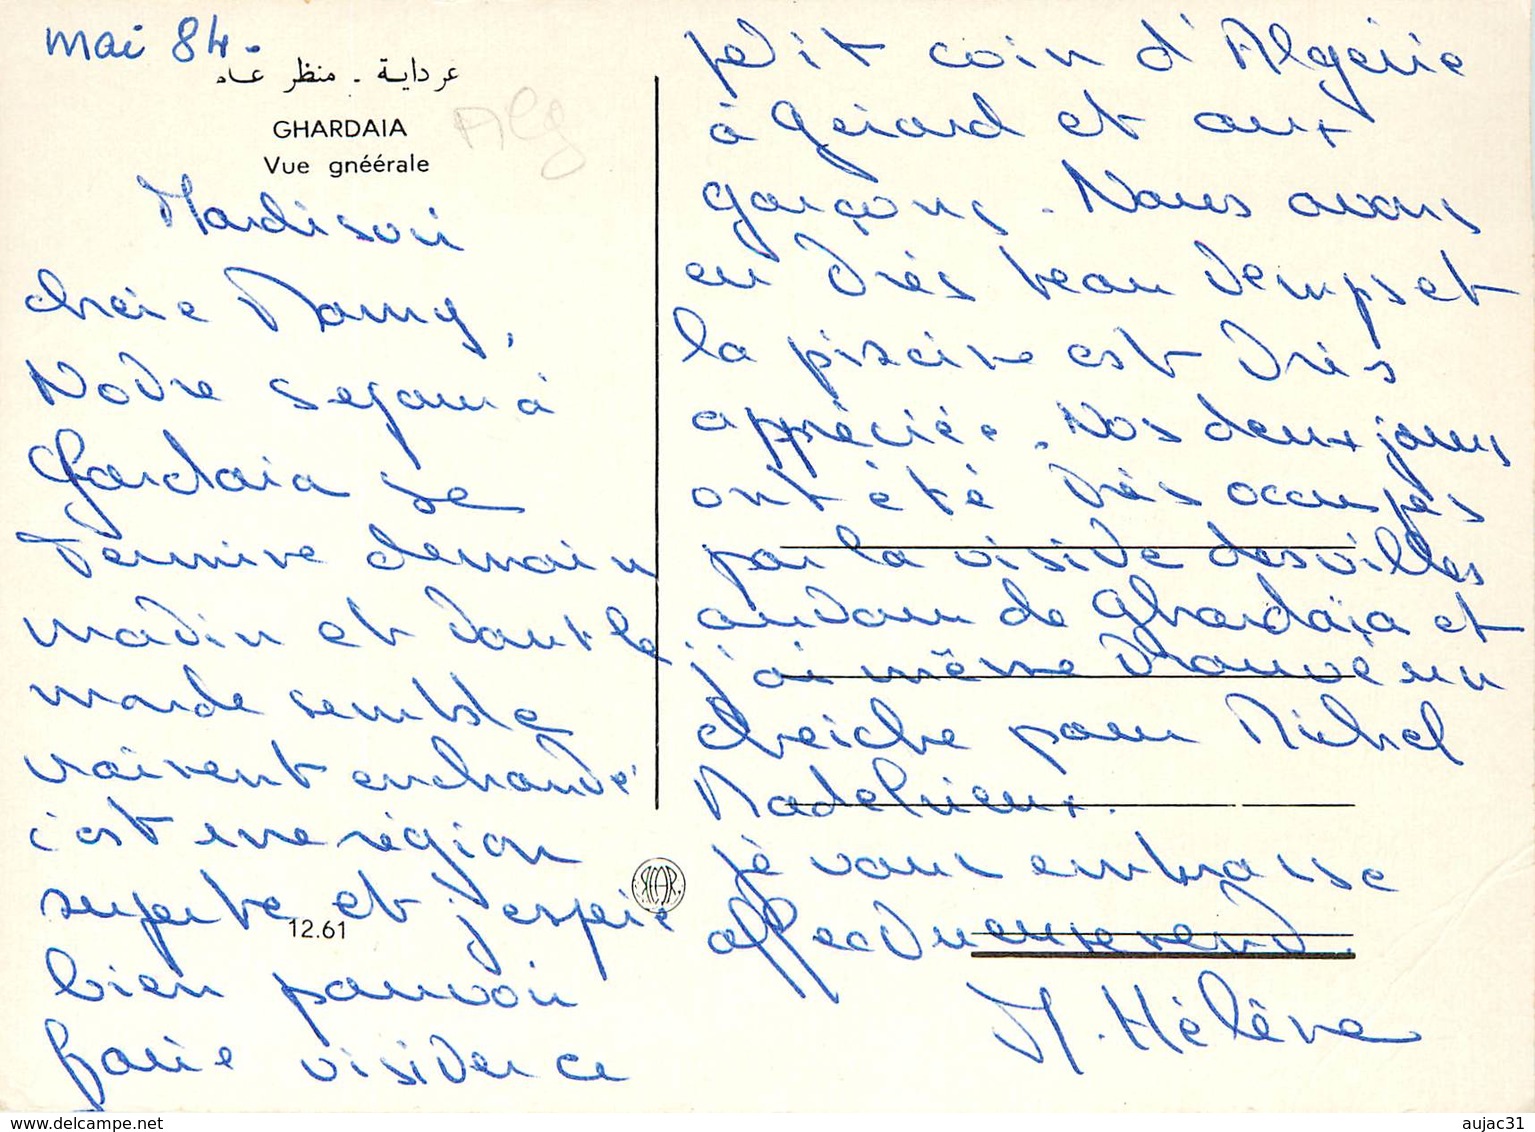 mai 84.
غرداية - منظر عام
GHARDAIA
Vue gnéérale
Alg
Mardi soir
chère Mamy,
Notre sejour à
Ghardaia se
termine demain
matin et tout le
monde semble
vraiment enchanté
c'est une région
superbe et j'espère
bien pouvoir
faire visiter ce
12.61
petit coin d'Algérie
à Gérard et aux
garçons. Nous avons
eu très beau temps et
la piscine est très
appréciée. Nos deux jours
ont été très occupés
par la visite des villes
autour de Ghardaïa et
j'ai même trouvé un
chèche pour Michel
Madelrieux.
je vous embrasse
affectueusement.
M. Hélène
www.delcampe.net
aujac31